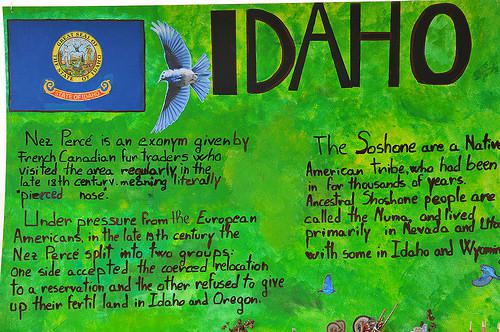 IDAHO
GREAT SEAL OF
THE STATE OF IDAHO
STATE OF IDAHO
Nez Percé is an exonym given by
French Canadian fur traders who
visited the area regularly in the
late 18th century, meaning literally
"pierced nose".
Under pressure from the European
Americans, in the late 19th century the
Nez Percé split into two groups:
one side accepted the coerced relocation
to a reservation and the other refused to give
up their fertil land in Idaho and Oregon.
The Soshone are a Native
American tribe, who had been
in for thousands of years.
Ancestral Shoshone people are
called the Numa, and lived
primarily in Nevada and
with some in Idaho and